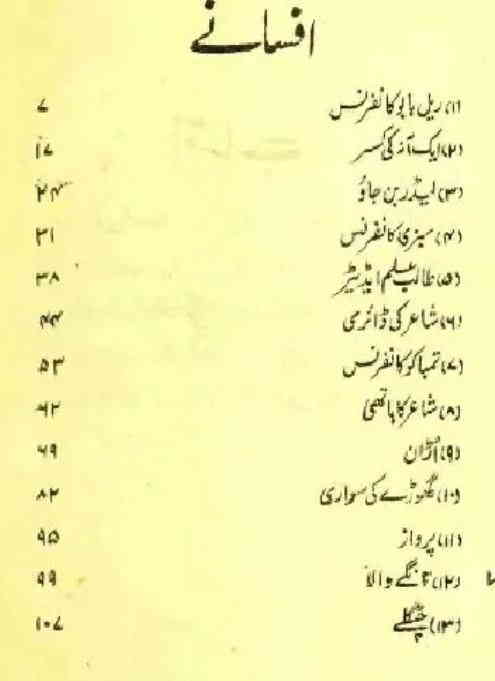 افسانے
(۱) ریل بابو کانفرنس ۷
(۲) ایک آنہ کی کسر ۱۷
(۳) لیڈر بن جاؤ ۲۴
(۴) سبزی کانفرنس ۳۱
(۵) طالب علم ایڈیٹر ۳۸
(۶) شاعر کی ڈائری ۴۴
(۷) تمباکو کانفرنس ۵۳
(۸) شاعر کا ہاتھی ۶۲
(۹) اُڑان ۶۹
(۱۰) گھوڑے کی سواری ۸۲
(۱۱) پرواز ۹۵
(۱۲) تانگے والا ۹۹
(۱۳) چٹکلے ۱۰۷